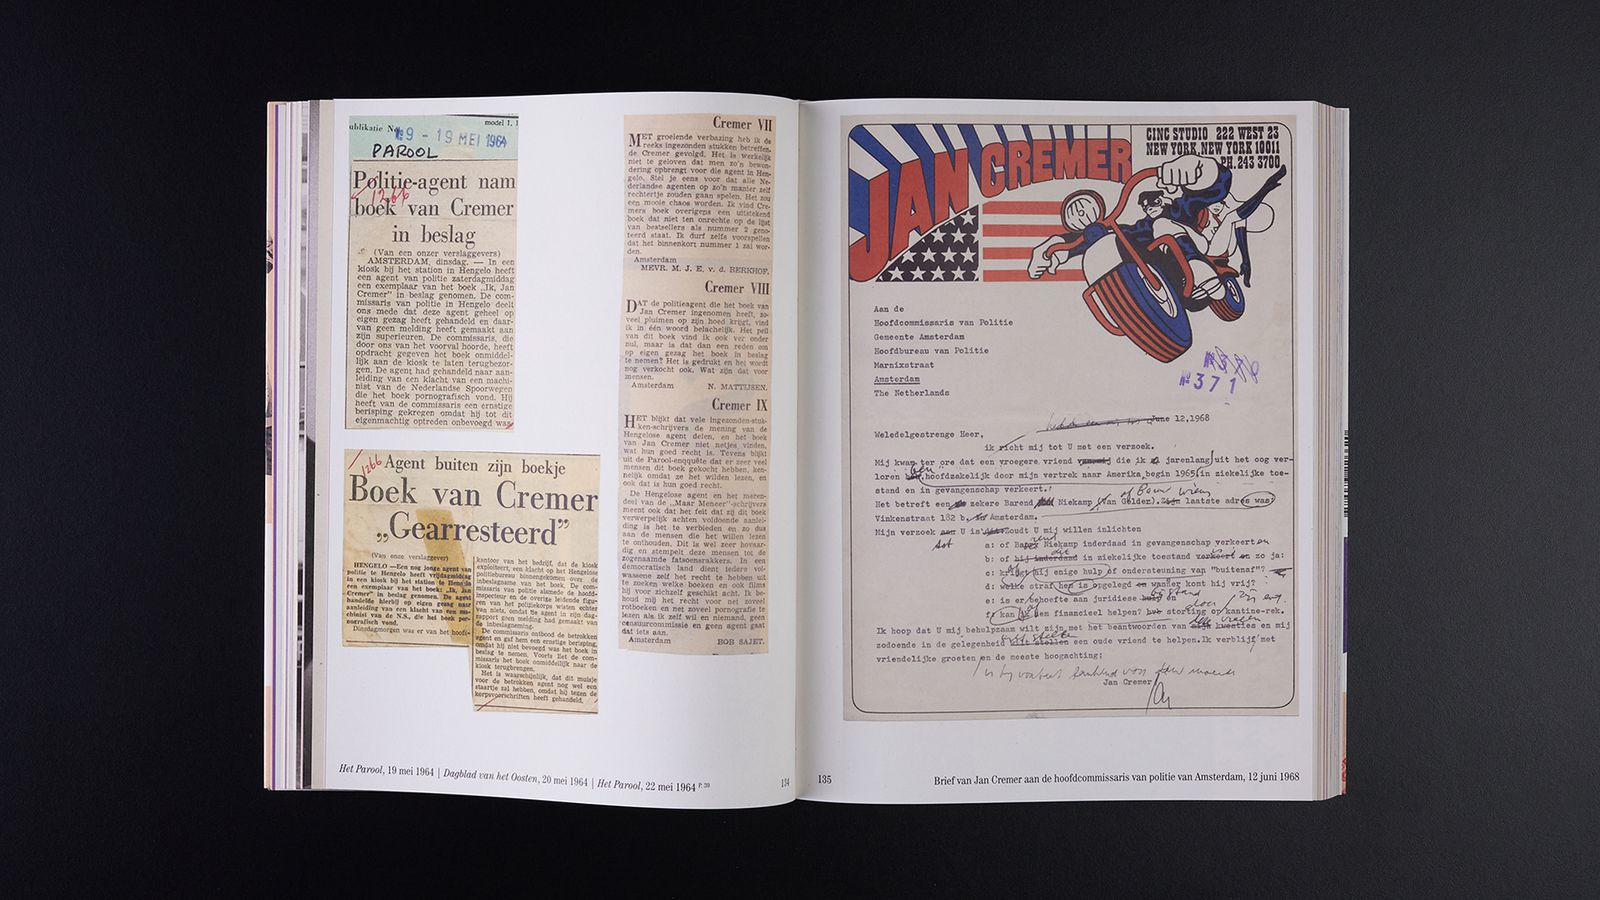 ublikatie No
model I. 1
№9 - 19 MEI 1964
PAROOL
Politie-agent nam
1266
boek van Cremer
in beslag
(Van een onzer verslaggevers)
AMSTERDAM, dinsdag. — In een
kiosk bij het station in Hengelo heeft
een agent van politie zaterdagmiddag
een exemplaar van het boek „Ik, Jan
Cremer" in beslag genomen. De com-
missaris van politie in Hengelo deelt
ons mede dat deze agent geheel op
eigen gezag heeft gehandeld en daar-
van geen melding heeft gemaakt aan
zijn superieuren. De commissaris, die
door ons van het voorval hoorde, heeft
opdracht gegeven het boek onmiddel-
lijk aan de kiosk te laten terugbezor-
gen. De agent had gehandeld naar aan-
leiding van een klacht van een machi-
nist van de Nederlandse Spoorwegen
die het boek pornografisch vond. Hij
heeft van de commissaris een ernstige
berisping gekregen omdat hij tot dit
eigenmachtig optreden onbevoegd was
1266
Agent buiten zijn boekje
Boek van Cremer
„Gearresteerd”
(Van onze verslaggever)
HENGELO —Een nog jonge agent van
politie te Hengelo heeft vrijdagmiddag
in een kiosk bij het station te Hengelo
een exemplaar van het boek: „Ik, Jan
Cremer" in beslag genomen. De agent
handelde hierbij op eigen gezag naar
aanleiding van een klacht van een ma-
chinist van de N.S., die het boek por-
nografisch vond.
Dinsdagmorgen was er van het hoofd-
kantoor van het bedrijf, dat de kiosk
exploiteert, een klacht op het Hengelose
politiebureau binnengekomen over de
inbeslagname van het boek. De com-
missaris van politie alsmede de hoofd-
inspecteur en de overige leidende figu-
ren van het politiekorps wisten echter
van niets, omdat de agent in zijn dag-
rapport geen melding had gemaakt van
de inbeslagneming.
De commissaris ontbood de betrokken
agent en gaf hem een ernstige berisping,
omdat hij niet bevoegd was het boek in
beslag te nemen. Voorts liet de com-
missaris het boek onmiddellijk naar de
kiosk terugbrengen.
Het is waarschijnlijk, dat dit muisje
voor de betrokken agent nog wel een
staartje zal hebben, omdat hij tegen de
korpsvoorschriften heeft gehandeld.
Cremer VII
MET groeiende verbazing heb ik de
reeks ingezonden stukken betreffen-
de Cremer gevolgd. Het is werkelijk
niet te geloven dat men zo'n bewon-
dering opbrengt voor die agent in Hen-
gelo. Stel je eens voor dat alle Ne-
derlandse agenten op zo'n manier zelf
rechtertje zouden gaan spelen. Het zou
een mooie chaos worden. Ik vind Cre-
mers boek overigens een uitstekend
boek dat niet ten onrechte op de lijst
van bestsellers als nummer 2 geno-
teerd staat. Ik durf zelfs voorspellen
dat het binnenkort nummer 1 zal wor-
den.
Amsterdam
MEVR. M. J. E. v. d. BERKHOF.
Cremer VIII
DAT de politieagent die het boek van
Jan Cremer ingenomen heeft, zo-
veel pluimen op zijn hoed krijgt, vind
ik in één woord belachelijk. Het peil
van dit boek vind ik ook ver onder
nul, maar is dat dan een reden om
op eigen gezag het boek in beslag
te nemen? Het is gedrukt en het wordt
nog verkocht ook. Wat zijn dat voor
mensen.
Amsterdam N. MATTIJSEN.
Cremer IX
HET blijkt dat vele ingezonden-stuk-
ken-schrijvers de mening van de
Hengelose agent delen, en het boek
van Jan Cremer niet netjes vinden,
wat hun goed recht is. Tevens blijkt
uit de Parool-enquête dat er zeer veel
mensen dit boek gekocht hebben, ken-
nelijk omdat ze het wilden lezen, en
ook dat is hun goed recht.
De Hengelose agent en het meren-
deel van de „Maar Meneer”-schrijvers
meent ook dat het feit dat zij dit boek
verwerpelijk achten voldoende aanlei-
ding is het te verbieden en zo dus
aan de mensen die het willen lezen
te onthouden. Dit is wel zeer hovaar-
dig en stempelt deze mensen tot de
zogenaamde fatsoensrakkers. In een
democratisch land dient iedere vol-
wassene zelf het recht te hebben uit
te zoeken welke boeken en ook films
hij voor zichzelf geschikt acht. Ik be-
houd mij het recht voor net zoveel
rotboeken en net zoveel pornografie te
lezen als ik zelf wil en niemand, geen
censuurcommissie en geen agent gaat
dat iets aan.
Amsterdam BOB SAJET.
Het Parool, 19 mei 1964 | Dagblad van het Oosten, 20 mei 1964 | Het Parool, 22 mei 1964 P. 39
134
JAN CREMER
CINC STUDIO 222 WEST 23
NEW YORK, NEW YORK 10011
PH. 243 3700
Aan de
Hoofdcommissaris van Politie
Gemeente Amsterdam
Hoofdbureau van Politie
Marnixstraat
Amsterdam
The Netherlands
№ 371
June 12,1968
Weledelgestrenge Heer,
ik richt mij tot U met een verzoek.
Mij kwam ter ore dat een vroegere vriend die ik jarenlang uit het oog ver-
loren ben hoofdzakelijk door mijn vertrek naar Amerika begin 1965, in ziekelijke toe-
stand en in gevangenschap verkeert.
Het betreft een zekere Barend Niekamp (van Gelder). Zijn laatste adres was
Vinkenstraat 182 b. Amsterdam.
Mijn verzoek aan U is: Zoudt U mij willen inlichten
a: of Niekamp inderdaad in gevangenschap verkeert en
b: of hij inderdaad in ziekelijke toestand verkeert en zo ja:
c: krijgt hij enige hulp of ondersteuning van "buitenaf"?
d: welke straf hem is opgelegd en wanneer komt hij vrij?
e: is er behoefte aan juridiese
f: kan ik hem financieel helpen? storting op kantine-rek.
Ik hoop dat U mij behulpzaam wilt zijn met het beantwoorden van kwesties en mij
zodoende in de gelegenheid wilt stellen een oude vriend te helpen. Ik verblijf met
vriendelijke groeten en de meeste hoogachting:
Jan Cremer
135
Brief van Jan Cremer aan de hoofdcommissaris van politie van Amsterdam, 12 juni 1968